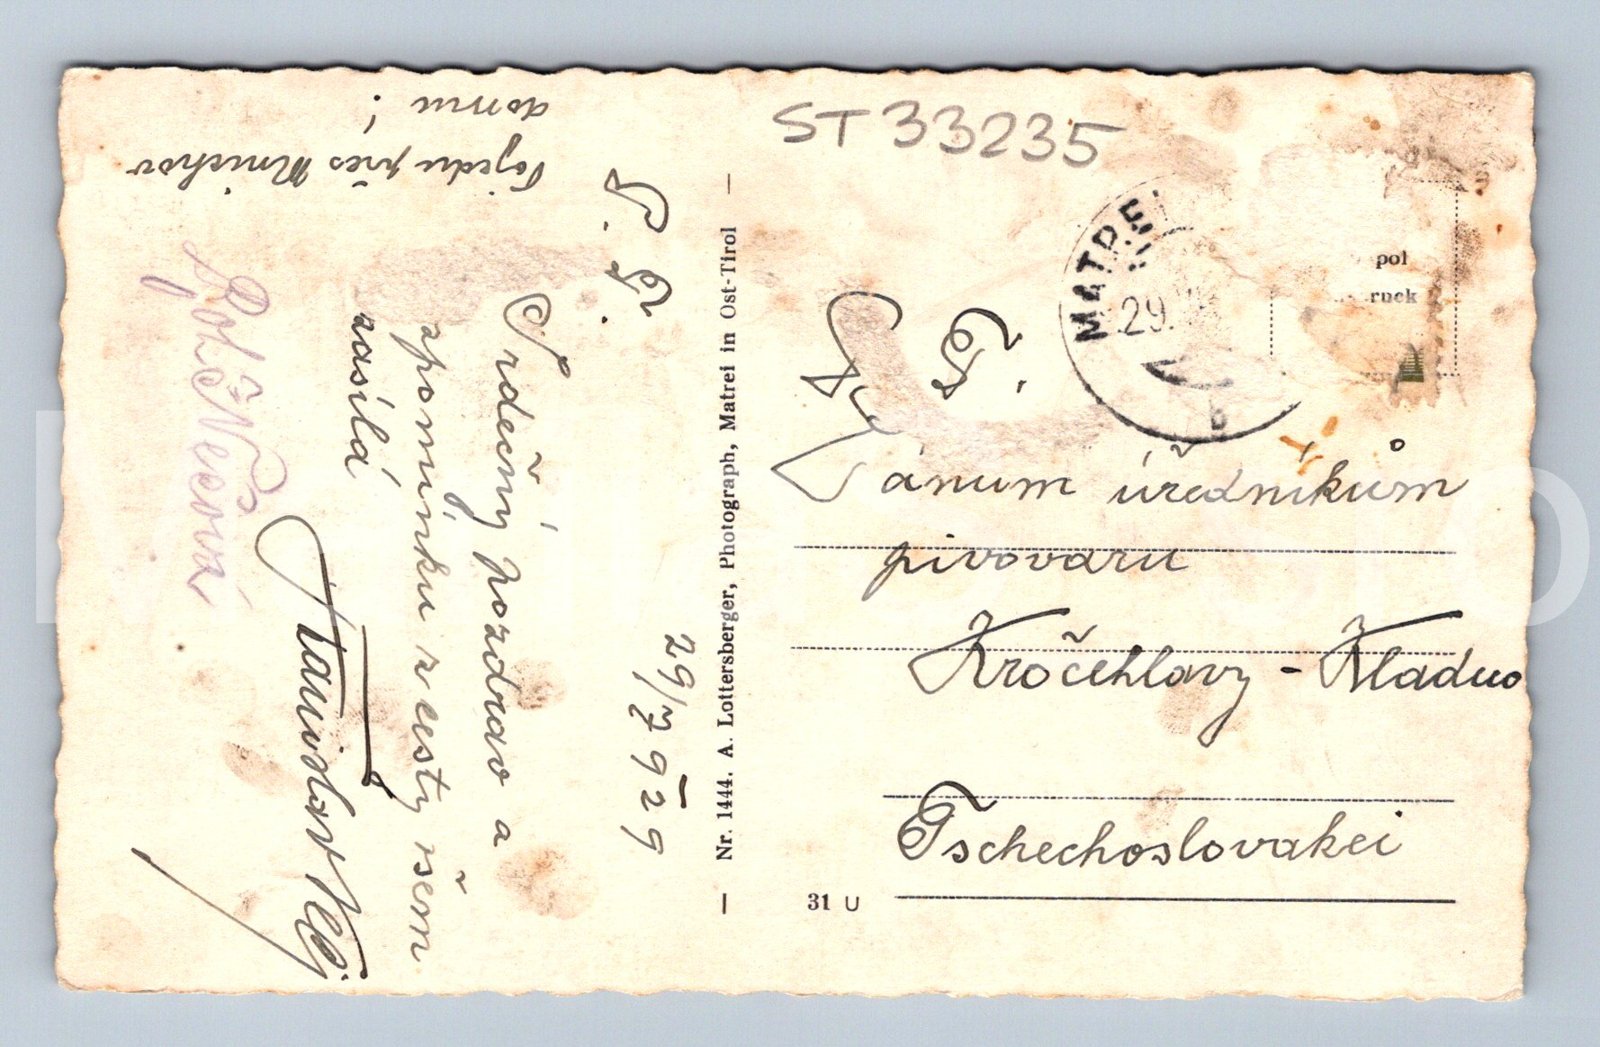 ST 33235
P. T.
29/7 1929
Srdečný pozdrav a
vzpomínku z cesty všem
zasílá
Pojedu přes Mnichov
domů!
Nr. 1444. A. Lottersberger, Photograph, Matrei in Ost-Tirol
MATREI
29.
b
pol
ruck
P. T.
Pánům úředníkům
pivovaru
Kročehlavy - Kladno
Tschechoslovakei
31 U